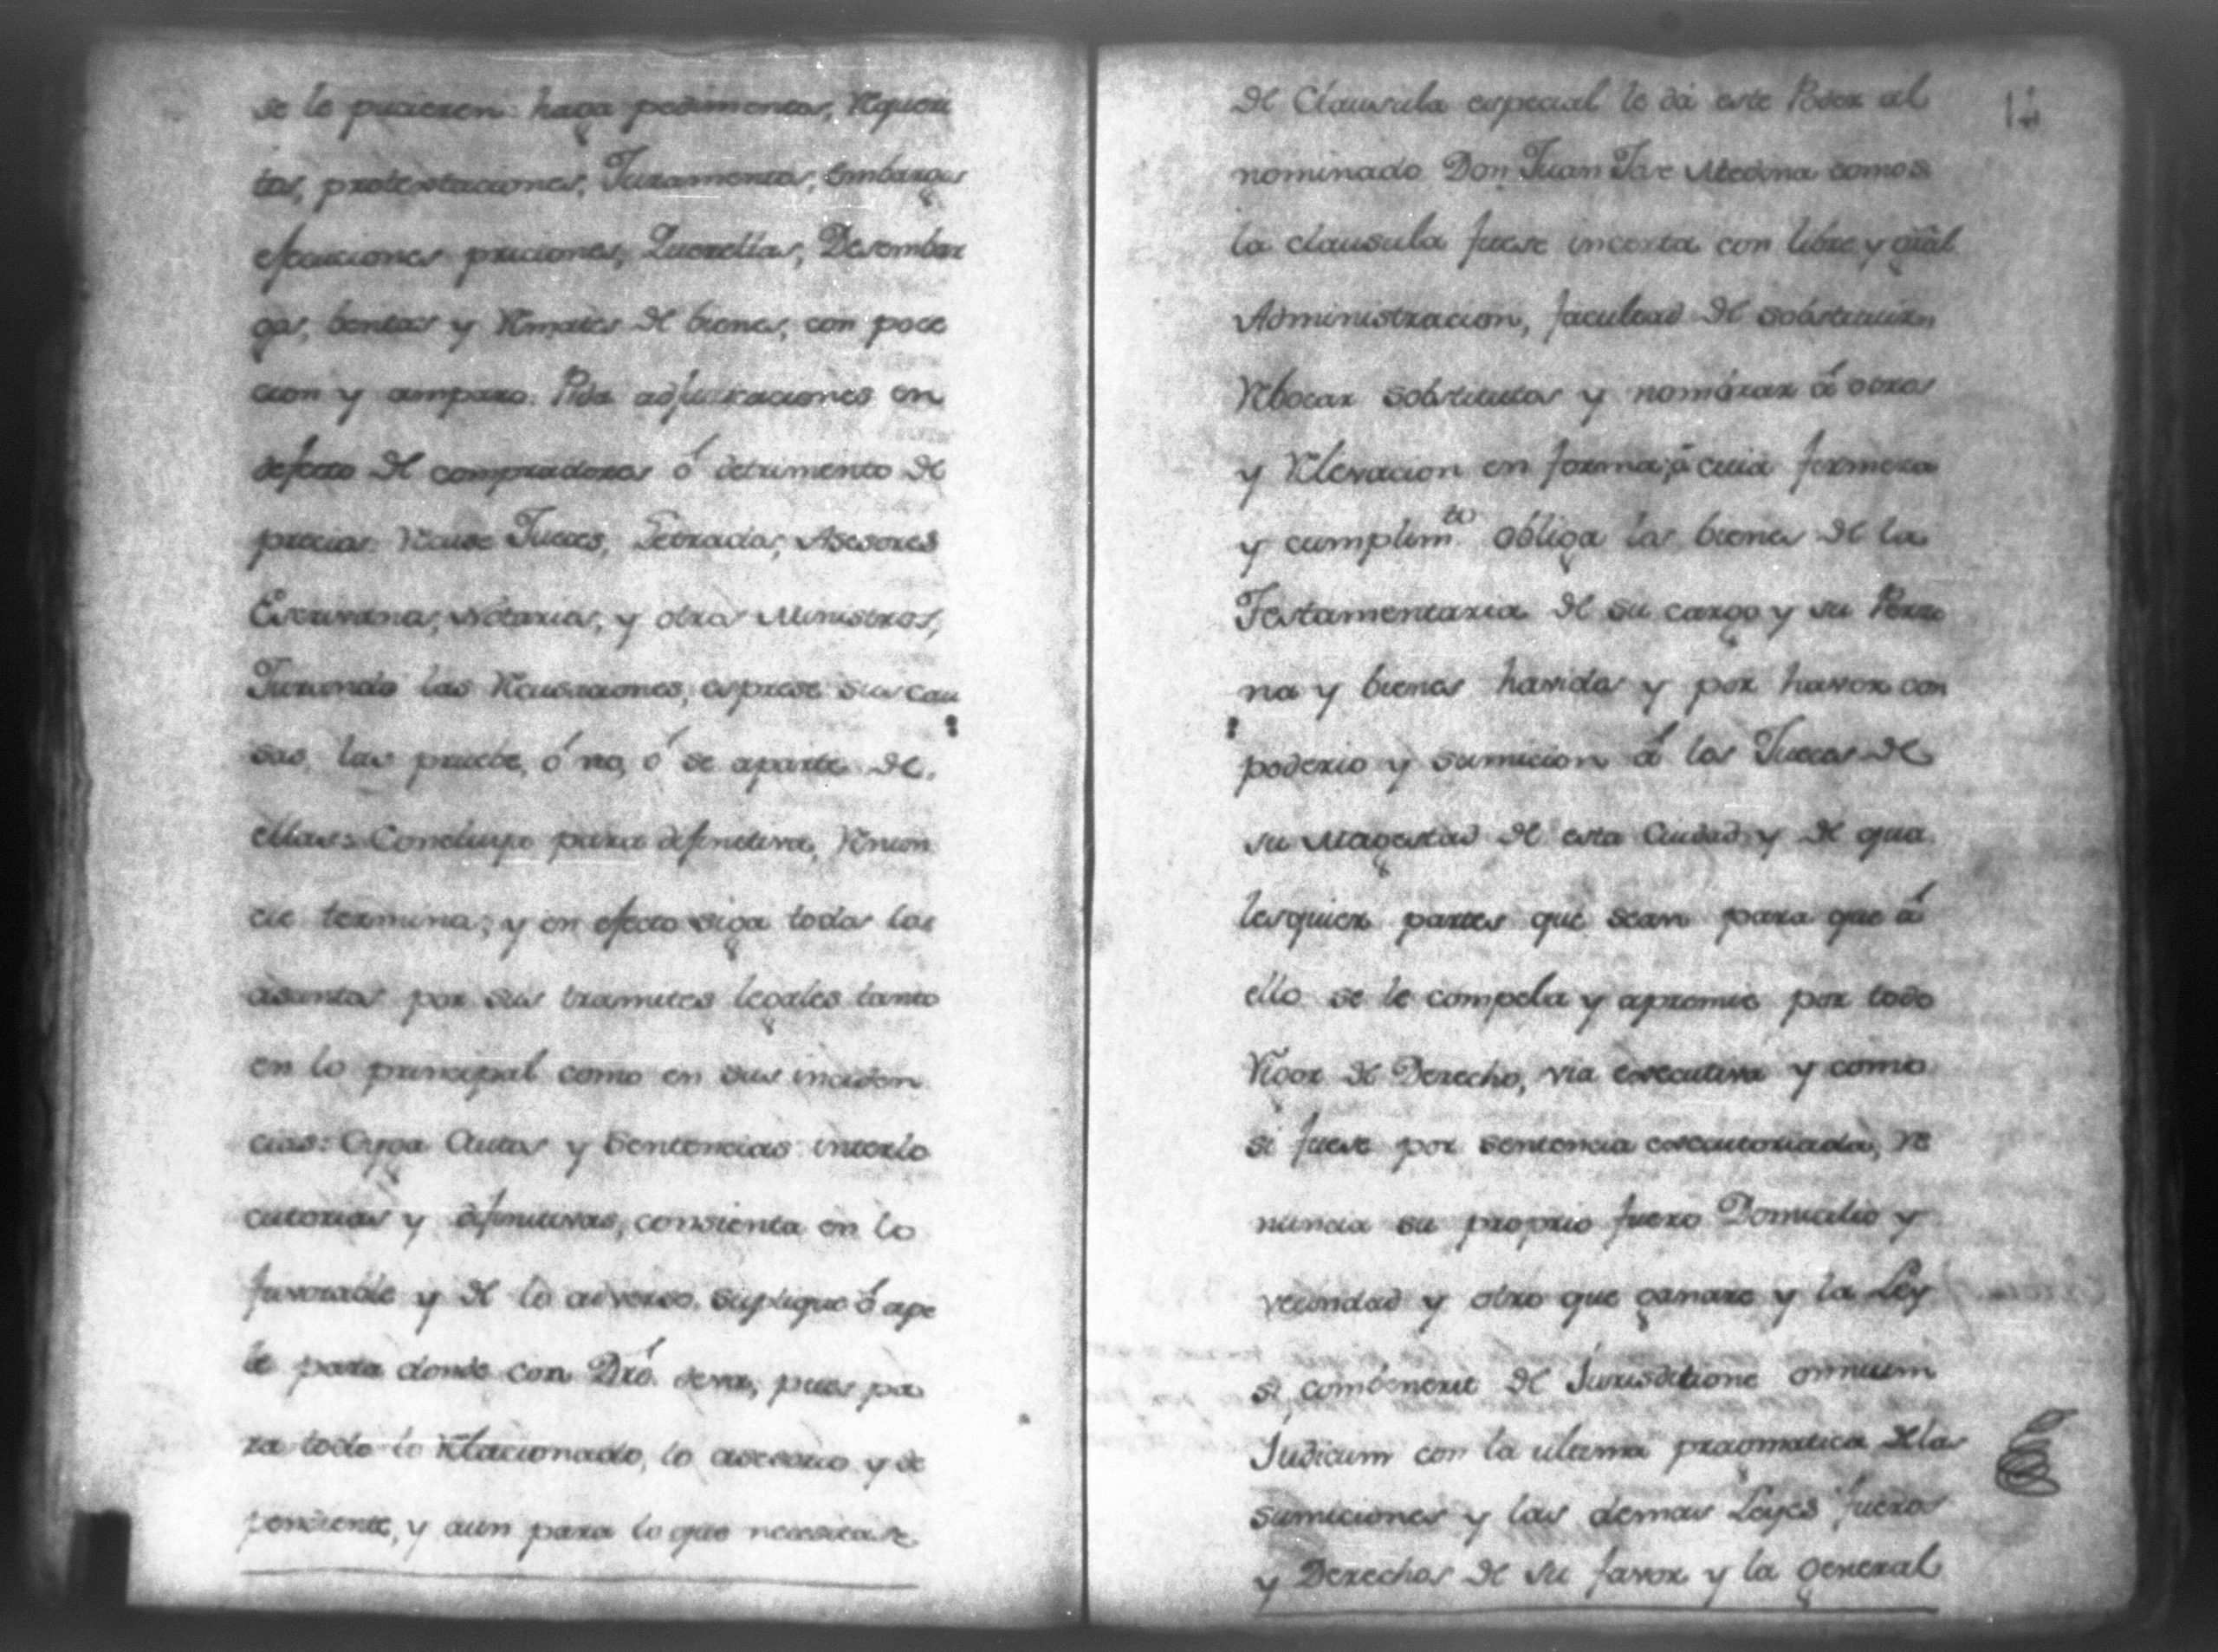 se le pucieren haga pedimentos, Requeri
tos, protestaciones, Juramentos, embargos
efecuciones priciones, Querellas, Desembar
gos, bentas y Remates de bienes, con poce
cion y amparo. Pida adjudicaciones en
defecto de compradores ó detrimento de
precios Recuse Jueces, Letrados, Asesores
Escrivanos, Notarios, y otros Ministros,
Jurando las Recusaciones, esprese sus cau
sas, las pruebe, ó no, ó se aparte de
ellas: Concluya para difinitiva, Renun
cie terminos, y en efecto siga todos los
asuntos por sus tramites legales tanto
en lo principal como en sus inciden
cias: Oyga Autos y Sentencias interlo
cutorias y difinitivas, concienta en lo
favorable y de lo adverso suplique ó ape
le para donde con Dró. deva, pues pa
ra todo lo Relacionado, lo acesorio y de
pendiente, y aun para lo que necesitase
de Clausula especial le da este Poder al
nominado Don Juan Jose Medina como si
la clausula fuese incerta con libre y gral
Administracion, facultad de sobstituir,
Rebocar sobstitutos y nombrar á otros
y Relevacion en forma; á cuia firmeza
y cumplim.to obliga los bienes de la
Testamentaria de su cargo y su Perso
na y bienes havidos y por haver con
poderio y sumicion á los Jueces de
su Magestad de esta Ciudad y de qua
lesquier partes que sean para que á
ello se le compela y apremie por todo
Rigor de Derecho, via executiva y como
si fuese por sentencia executoriada, re
nuncia su proprio fuero Domicilio y
vecindad y otro que ganare y la Ley
si combenerit de Jurisditione omnium
Judicum con la ultima pragmatica de las
sumiciones y las demas Leyes fueros
y Derechos de su favor y la general